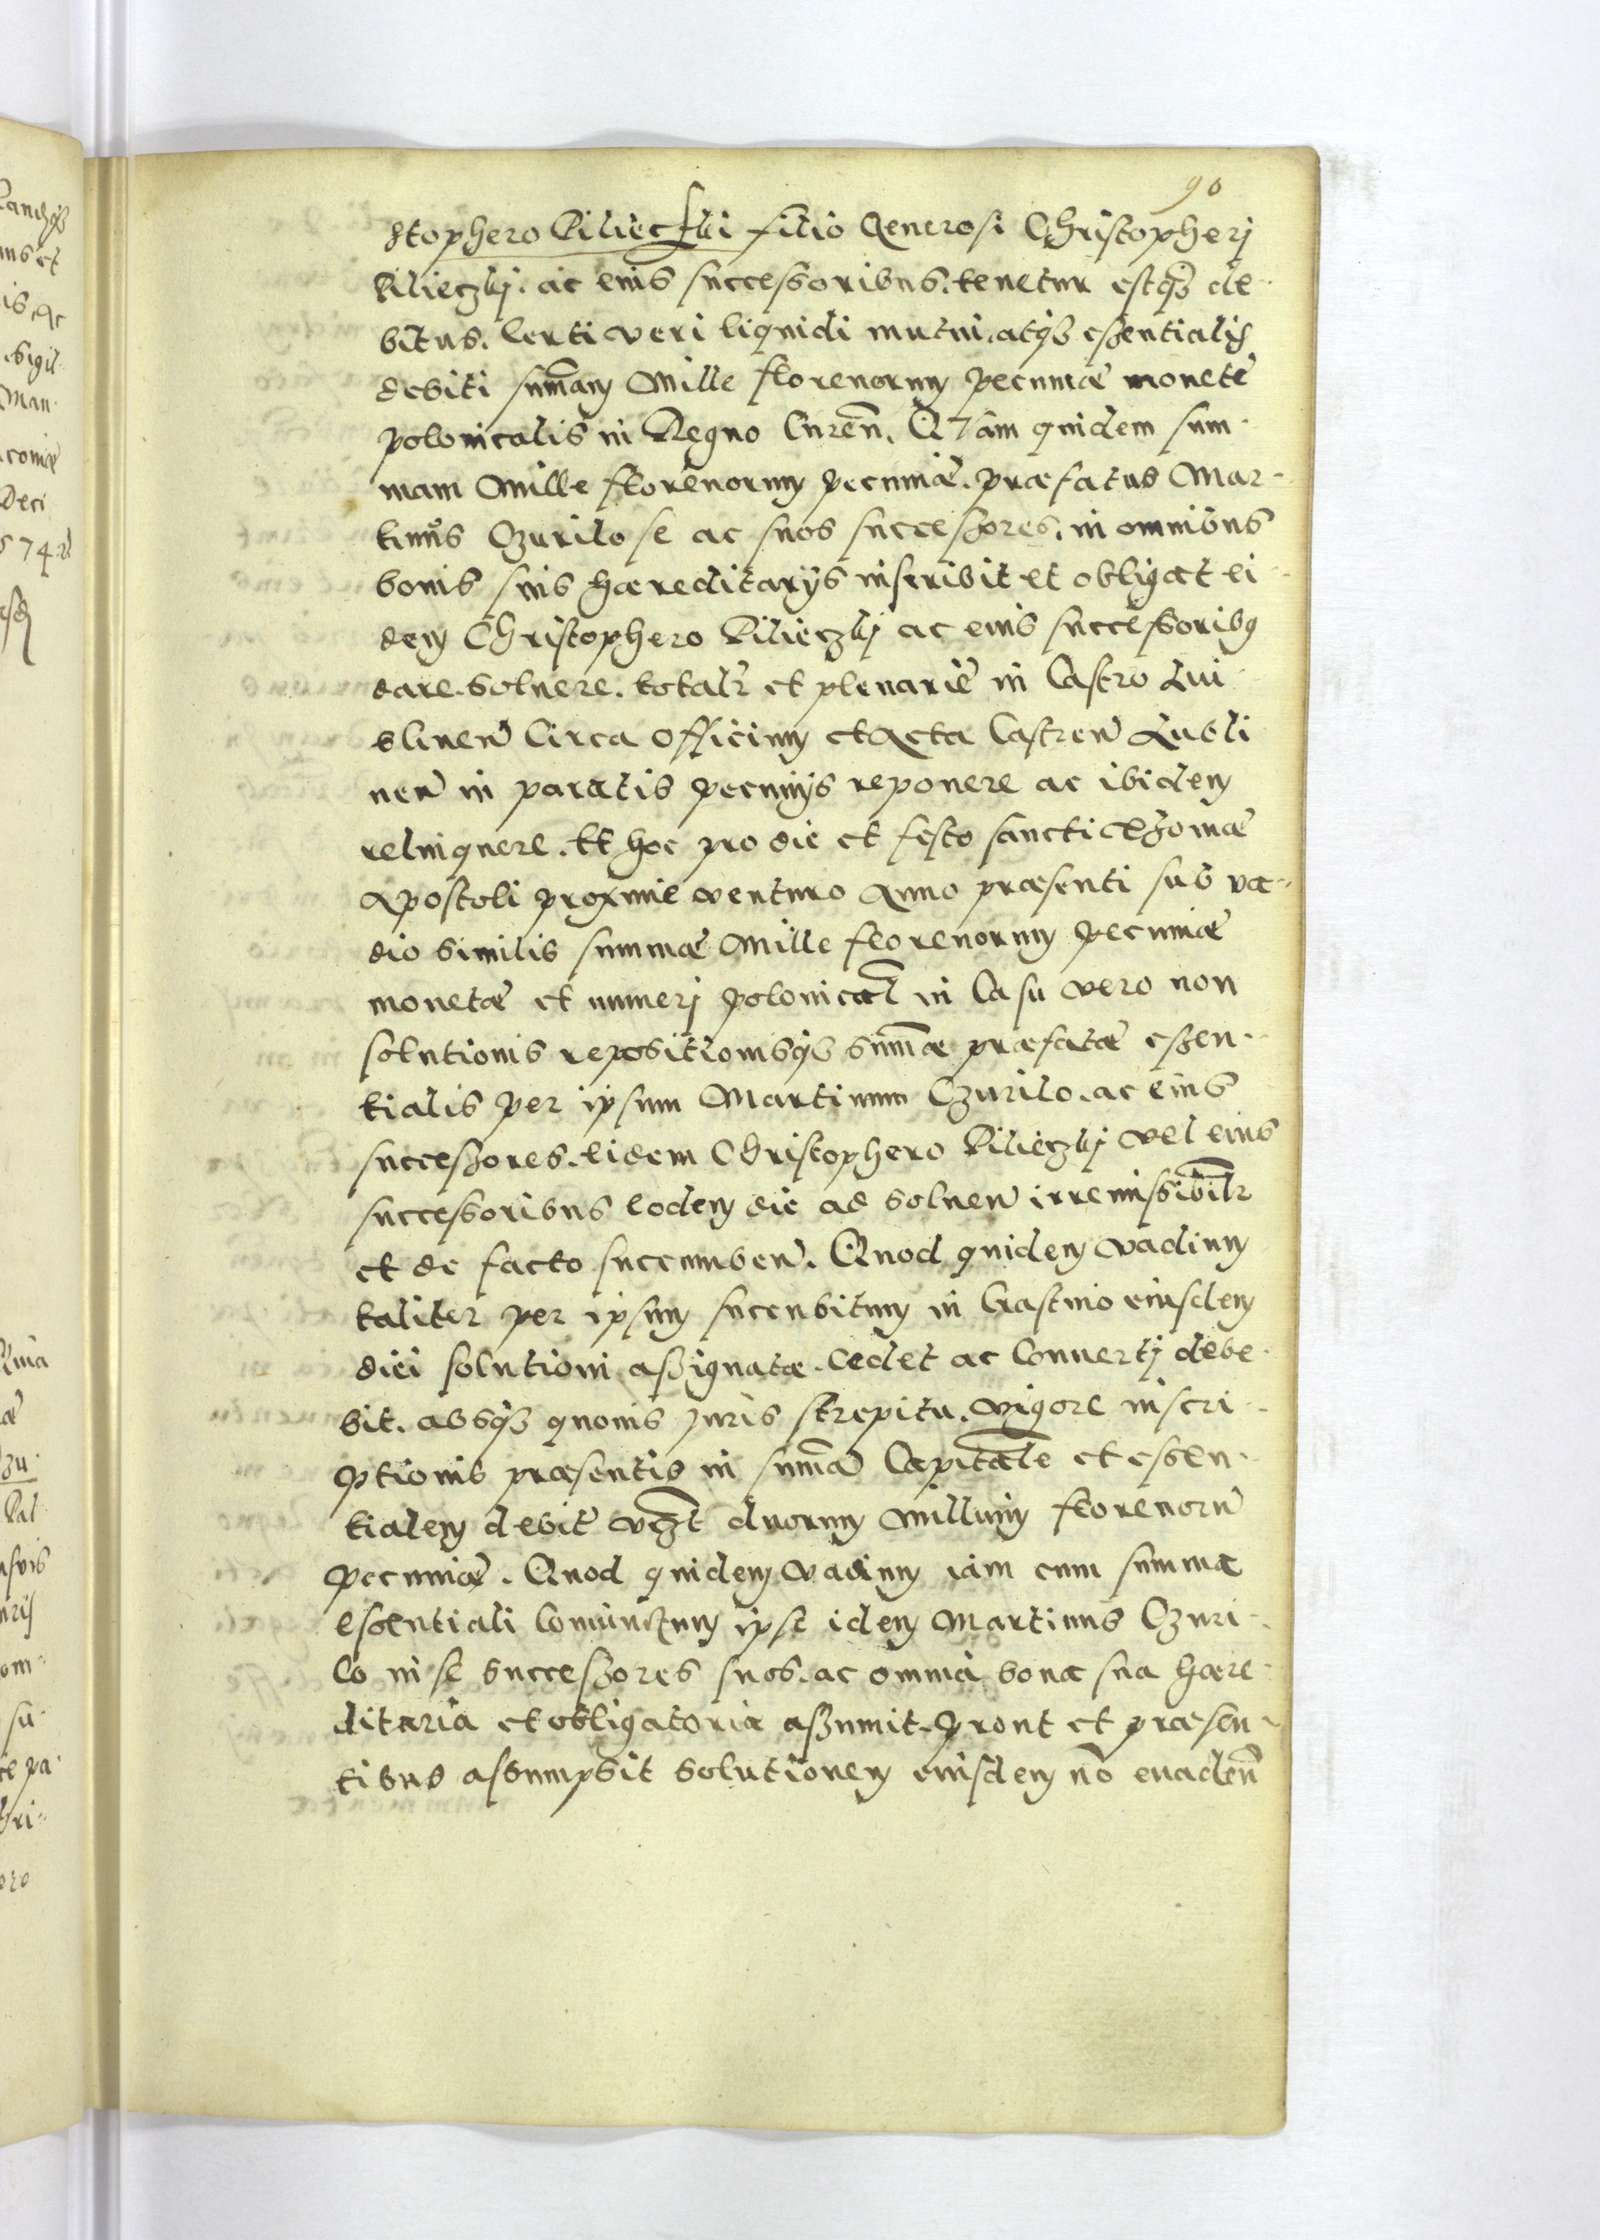 90
stophero Pilieczki filio Generosi Christopherj
Pilieczkj. ac eius successoribus. tenetur estq3 de-
bitus. Certi veri liquidi mutui. atq3 essentialis
debiti summam Mille florenorum pecuniæ monetæ
polonicalis in Regno Curen. Quam quidem sum-
mam Mille florenorum pecuniæ. præfatus Mar-
tinus Czurilo se ac suos successores. in omnibus
bonis suis hæreditarijs inscribit et obligat ei-
dem Christophero Pilieczkj ac eius successoribus
dare. solvere. totalr et plenarie in Castro Lui-
blinen Circa Officium et Acta Castren Lubli
nen in paratis pecunijs reponere ac ibidem
relinquere. Et hoc pro die et festo sancti Thomæ
Apostoli proxime venturo Anno præsenti sub va-
dio similis summæ Mille florenorum pecuniæ
monetæ et numerj polonical in Casu vero non
solutionis repositionisq3 summæ præfatæ essen-
tialis per ipsum Martinum Czurilo. ac eius
successores. eidem Christophero Pilieczkj vel eius
successoribus eodem die ad soluen irremissibilr
et de facto succumben. Quod quidem vadium
taliter per ipsum succubitum in Crastino eiusdem
diei solutioni assignatæ. Cedet ac Conuertj debe-
bit. absq3 quouis Juris strepitu. vigore inscri-
ptionis præsentis in summa Capitale et essen-
tialem debit vczt duorum Millium florenorum
pecuniæ. Quod quidem Vadium iam cum summa
essentiali Coniunctum ipse idem Martinus Czuri-
lo in se successores suos. ac omnia bona sua hære-
ditaria et obligatoria assumit. prout et præsen-
tibus assumpsit solutionem eiusdem no euaden